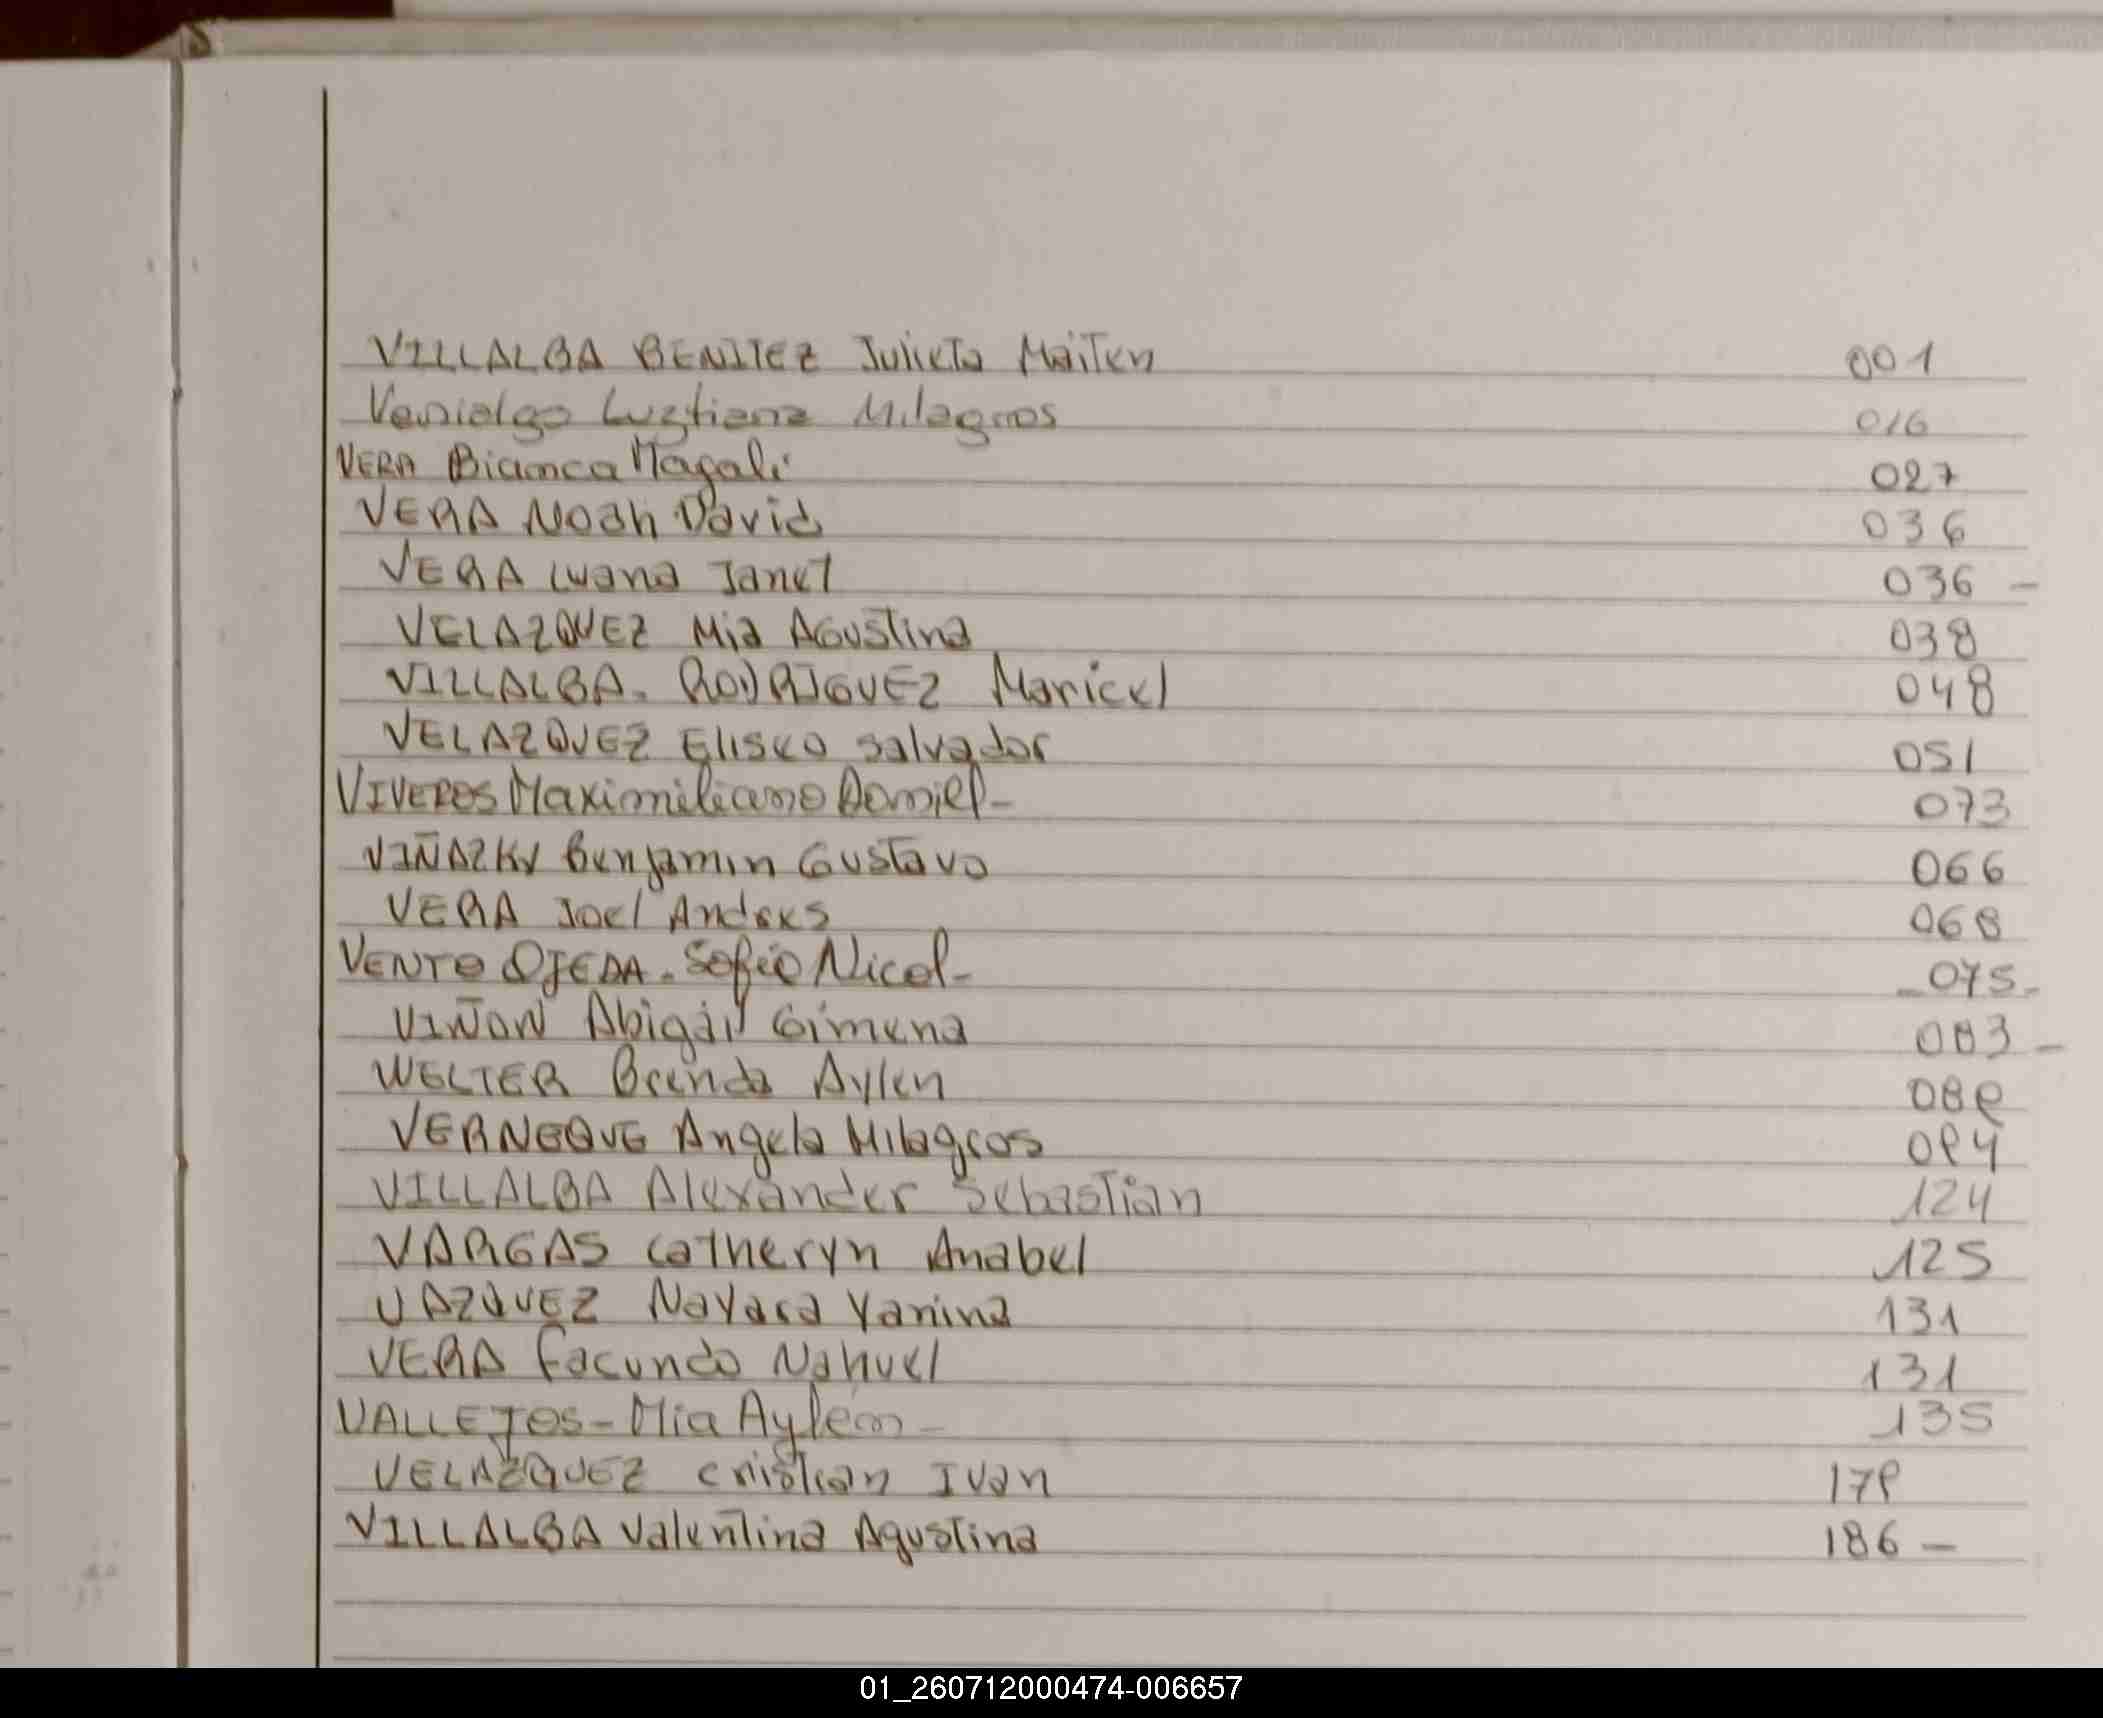 VILLALBA BENITEZ Julieta Maiten 001
Venialgo Luztiana Milagros 016
VERA Bianca Magali 027
VERA Noah David 036
VERA Luana Janet 036 -
VELAZQUEZ Mia Agustina 038
VILLALBA. RODRIGUEZ Maricel 048
VELAZQUEZ Eliseo Salvador 051
VIVEROS Maximiliano Daniel- 073
VIÑAZKY Benjamin Gustavo 066
VERA Joel Andres 068
VENTO OJEDA. Sofia Nicol- _075-
VIÑON Abigail Gimena 083 -
WELTER Brenda Aylen 089
VERNEQUE Angela Milagros 094
VILLALBA Alexander Sebastian 124
VARGAS Catheryn Anabel 125
VAZQUEZ Nayara Yanina 131
VERA Facundo Nahuel 131
VALLEJOS - Mia Aylen - 135
VELAZQUEZ Cristian Ivan 179
VILLALBA Valentina Agustina 186 -
01_260712000474-006657